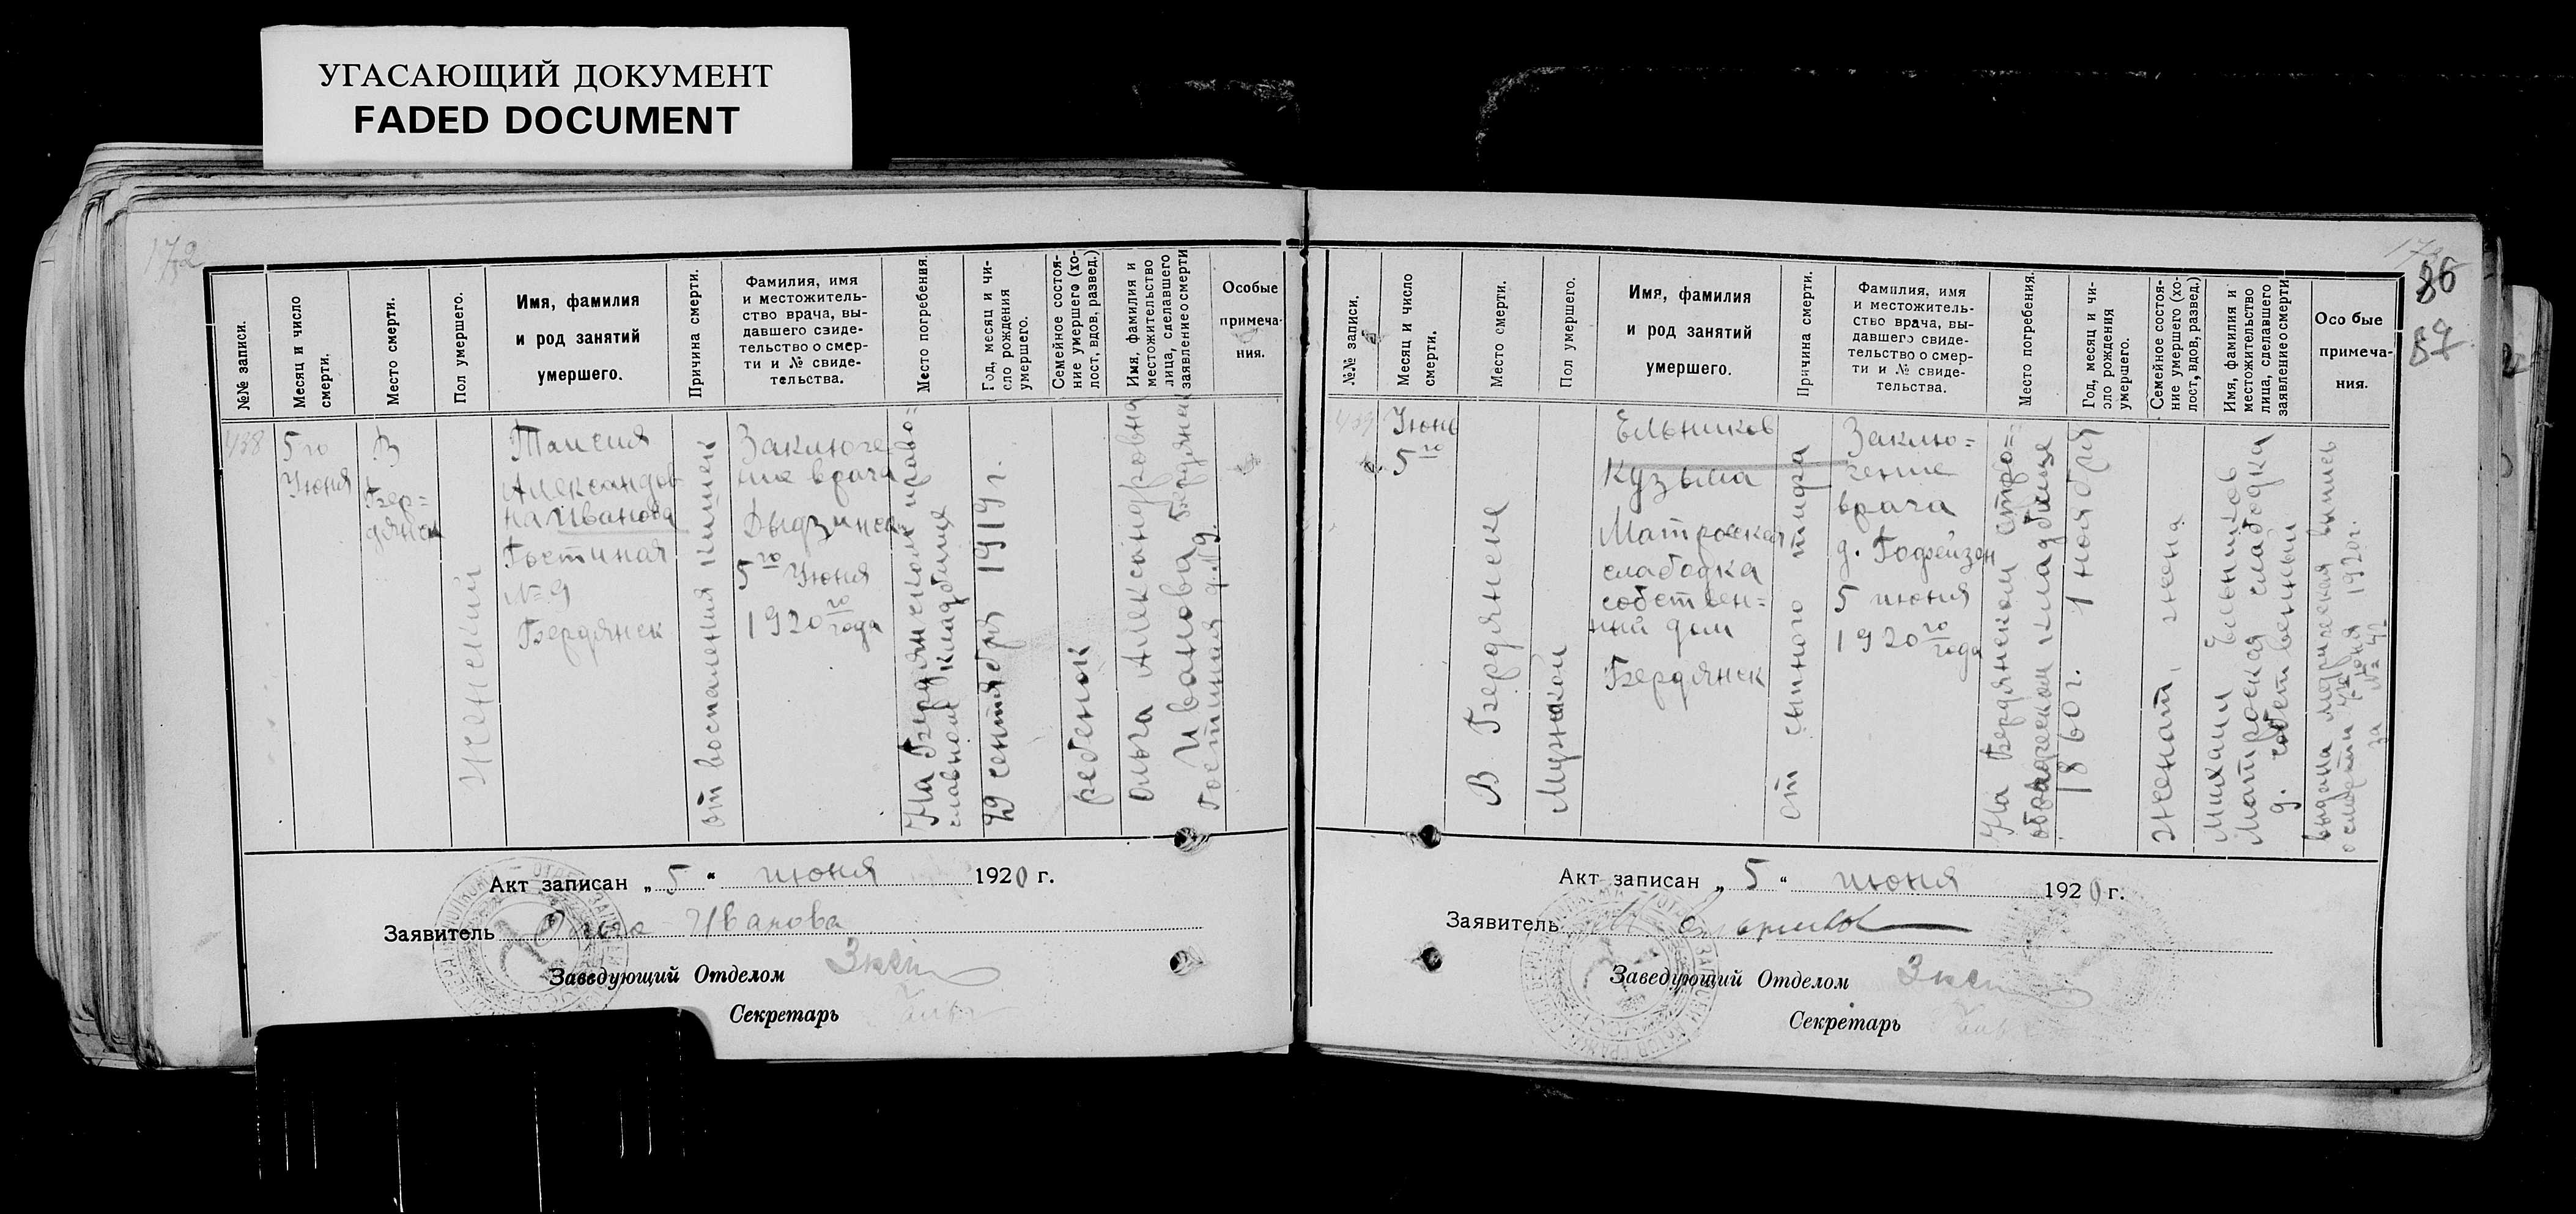 УГАСАЮЩИЙ ДОКУМЕНТ
FADED DOCUMENT
172
№№ записи.
Месяц и число
смерти.
Место смерти.
Пол умершего.
Имя, фамилия
и род занятий
умершего.
Причина смерти.
Фамилия, имя
и местожитель-
ство врача, вы-
давшего свиде-
тельство о смер-
ти и № свиде-
тельства.
Место погребения.
Год, месяц и чи-
сло рождения
умершего.
Семейное состоя-
ние умершего (хо-
лост, вдов, развед.)
Имя, фамилия и
местожительство
лица, сделавшего
заявление о смерти
Особые
примеча-
ния.
438
5го
Июня
В
Бер=
дянск
Женский
Таисия
Александров
на Иванова
Гостиная
№ 9
Бердянск
от воспаления кишек
Заключе
ние врача
5го Июня
1920го года
На Бердянском право=
славном кладбище
29 сентября 1919 г.
ребенок
Ольга Александровна
Иванова Бердянск
Гостиная д. № 9.
Акт записан „ 5 “ июня 1920 г.
Заявитель Ольга Иванова
Заведующий Отделом
Секретарь
86
87
№№ записи.
Месяц и число
смерти.
Место смерти.
Пол умершего.
Имя, фамилия
и род занятий
умершего.
Причина смерти.
Фамилия, имя
и местожитель-
ство врача, вы-
давшего свиде-
тельство о смер-
ти и № свиде-
тельства.
Место погребения.
Год, месяц и чи-
сло рождения
умершего.
Семейное состоя-
ние умершего (хо-
лост, вдов, развед.)
Имя, фамилия и
местожительство
лица, сделавшего
заявление о смерти
Осо бые
примеча-
ния.
439
Июнь
5го
В Бердянске
Мужской
Ельников
Кузьма
Матроская
слабодка
собствен=
ный дом
Бердянск
от сыпного тифа
Заклю=
чение
врача
5 июня
1920го года
На Бердянском
кладбище
1860 г. 1 ноября
женат, жена
Михаил Ельников
Матроская слабодка
д. собственный
выдана метрическая выпись
о смерти 7го июня 1920 г.
за № 42
Акт записан „ 5 “ июня 1920 г.
Заявитель М Ельников
Заведующий Отделом
Секретарь